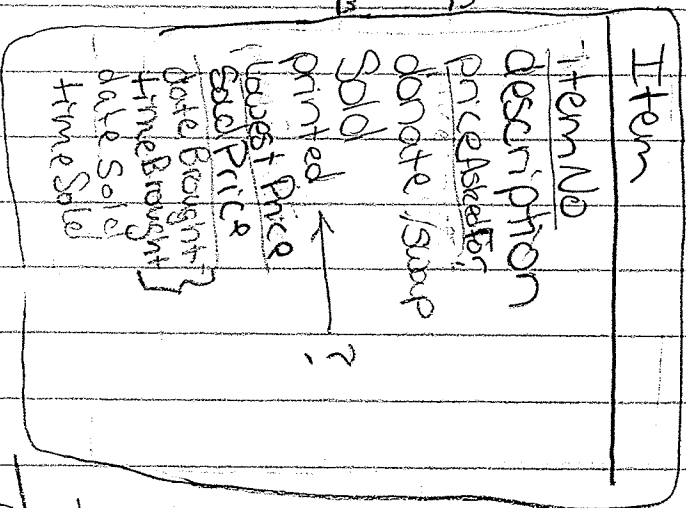 Item
ItemNo
description
priceAskedFor
donate/swap
Sold
printed ← ?
lowest Price
Sold Price
dateBrought
timeBrought }
date Sold
time Sold